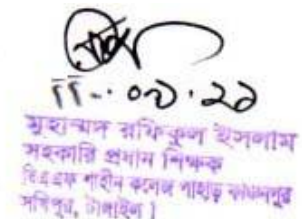 ১১.০৩.২১
মুহাম্মদ রফিকুল ইসলাম
সহকারি প্রধান শিক্ষক
বিএএফ শাহীন কলেজ পাহাড় কাঞ্চনপুর
সখিপুর, টাঙ্গাইল।